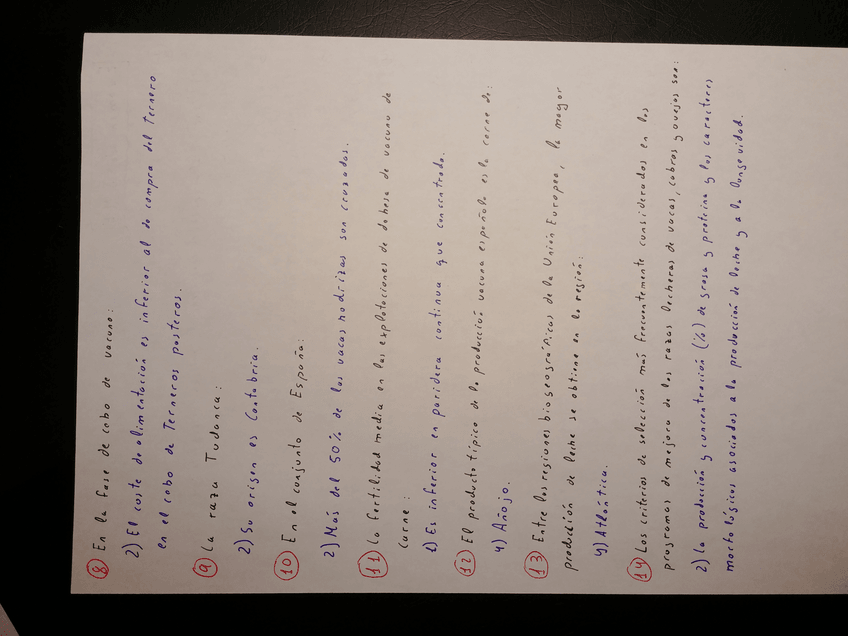 8 En la fase de cebo de vacuno:
2) El coste de alimentación es inferior al de compra del Ternero
en el cebo de Terneros pasteros.
9 La raza Tudanca:
2) Su origen es Cantabria.
10 En el conjunto de España:
2) Más del 50% de las vacas nodrizas son cruzadas.
11 La fertilidad media en las explotaciones de dehesa de vacuno de
carne:
1) Es inferior en paridera continua que concentrada.
12 El producto típico de la producción vacuna española es la carne de:
4) Añojo.
13 Entre las regiones biogeográficas de la Unión Europea, la mayor
producción de leche se obtiene en la región:
4) Atlántica.
14 Los criterios de selección más frecuentemente considerados en los
programas de mejora de las razas lecheras de vacas, cabras y ovejas son:
2) La producción y concentración (%) de grasa y proteína y los caracteres
morfológicos asociados a la producción de leche y a la longevidad.